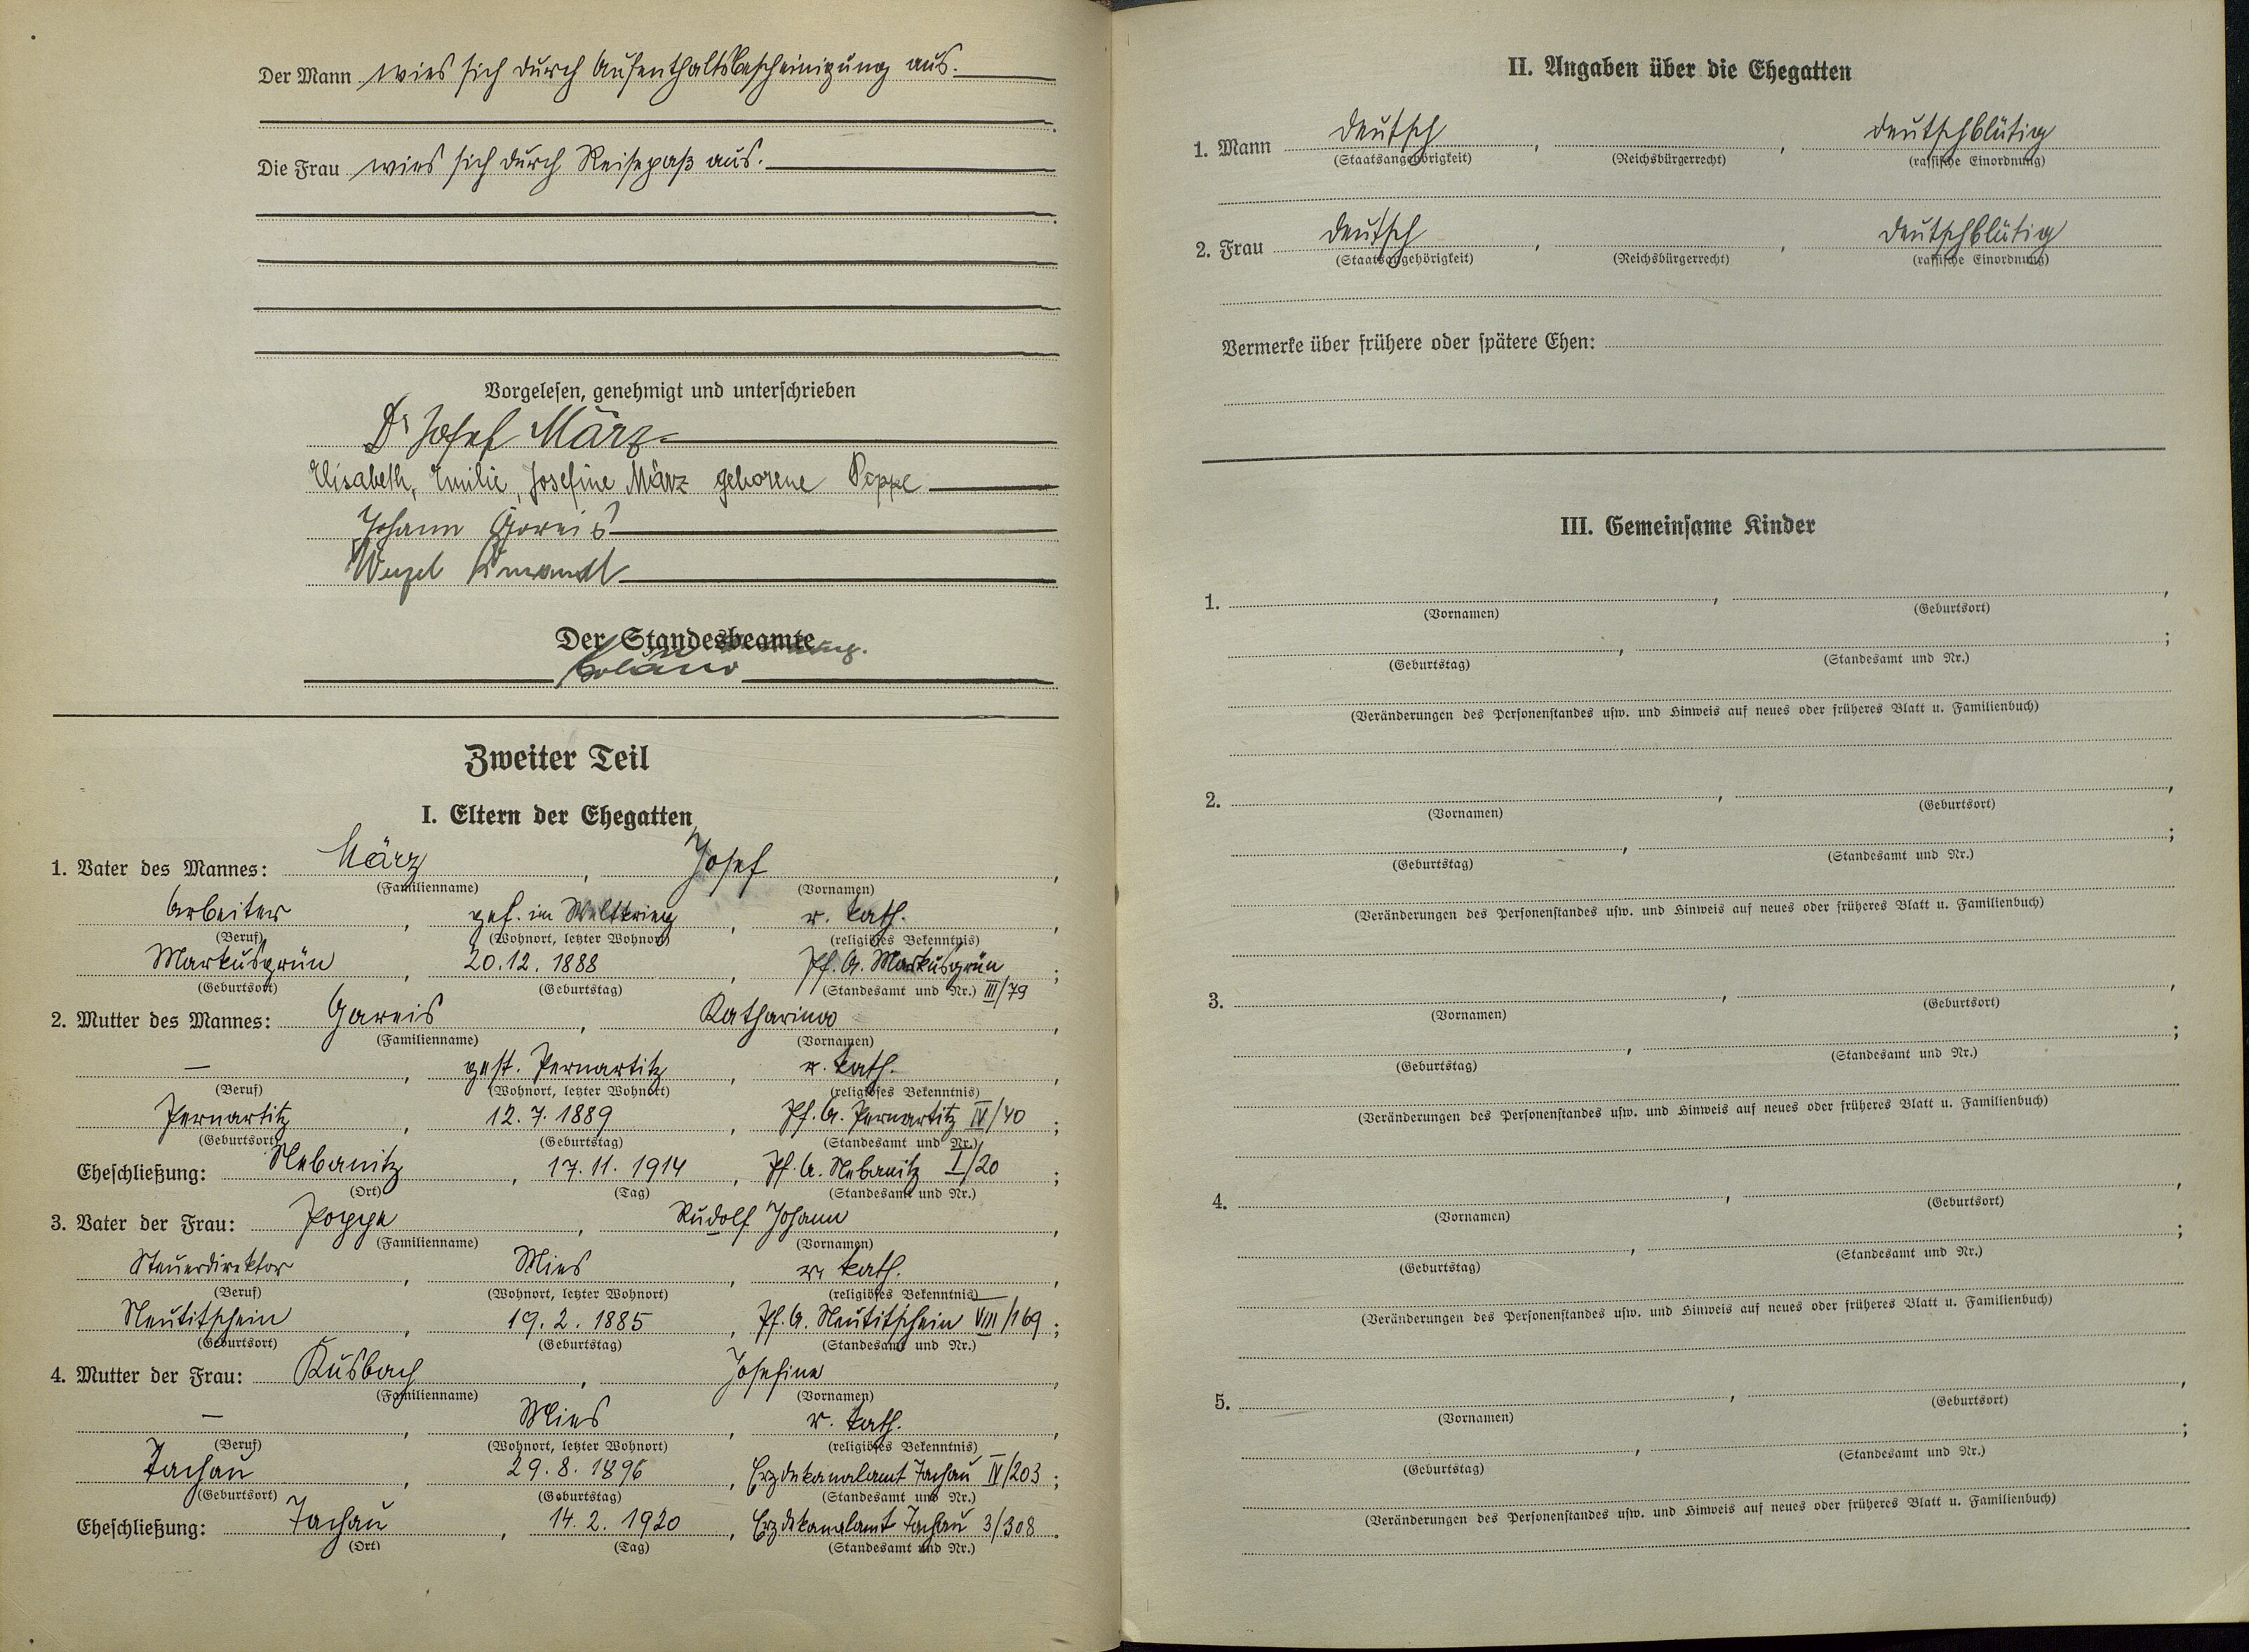 Der Mann wies sich durch Aufenthaltsbescheinigung aus.
Die Frau wies sich durch Reisepaß aus.
Vorgelesen, genehmigt und unterschrieben
Dr Josef März
Elisabeth, Emilie, Josefine März geborene Poppe
Johann Gareis
Wenzel
Der Standesbeamte
Zweiter Teil
I. Eltern der Ehegatten
1. Vater des Mannes: März, Josef,
(Familienname) (Vornamen)
Arbeiter, gef. im Weltkrieg, r. kath.,
(Beruf) (Wohnort, letzter Wohnort) (religiöses Bekenntnis)
Markusgrün, 20.12.1888, Pf. A. Markusgrün;
(Geburtsort) (Geburtstag) (Standesamt und Nr.) III/79
2. Mutter des Mannes: Gareis, Katharina,
(Familienname) (Vornamen)
—, gest. Pernartitz, r. kath.,
(Beruf) (Wohnort, letzter Wohnort) (religiöses Bekenntnis)
Pernartitz, 12.7.1889, Pf. A. Pernartitz IV/40;
(Geburtsort) (Geburtstag) (Standesamt und Nr.)
Eheschließung: Nebanitz, 17.11.1914, Pf. A. Nebanitz I/20;
(Ort) (Tag) (Standesamt und Nr.)
3. Vater der Frau: Poppe, Rudolf Johann,
(Familienname) (Vornamen)
Steuerdirektor, Mies, r. kath.,
(Beruf) (Wohnort, letzter Wohnort) (religiöses Bekenntnis)
Neutitschein, 19.2.1885, Pf. A. Neutitschein VIII/169;
(Geburtsort) (Geburtstag) (Standesamt und Nr.)
4. Mutter der Frau: Kusbach, Josefine,
(Familienname) (Vornamen)
—, Mies, r. kath.,
(Beruf) (Wohnort, letzter Wohnort) (religiöses Bekenntnis)
Tachau, 29.8.1896, Erzdekanalamt Tachau IV/203;
(Geburtsort) (Geburtstag) (Standesamt und Nr.)
Eheschließung: Tachau, 14.2.1920, Erzdekanalamt Tachau 3/308.
(Ort) (Tag) (Standesamt und Nr.)
II. Angaben über die Ehegatten
1. Mann deutsch, , deutschblütig
(Staatsangehörigkeit) (Reichsbürgerrecht) (rassische Einordnung)
2. Frau deutsch, , deutschblütig
(Staatsangehörigkeit) (Reichsbürgerrecht) (rassische Einordnung)
Vermerke über frühere oder spätere Ehen:
III. Gemeinsame Kinder
1. , ,
(Vornamen) (Geburtsort)
, ;
(Geburtstag) (Standesamt und Nr.)
(Veränderungen des Personenstandes usw. und Hinweis auf neues oder früheres Blatt u. Familienbuch)
2. , ,
(Vornamen) (Geburtsort)
, ;
(Geburtstag) (Standesamt und Nr.)
(Veränderungen des Personenstandes usw. und Hinweis auf neues oder früheres Blatt u. Familienbuch)
3. , ,
(Vornamen) (Geburtsort)
, ;
(Geburtstag) (Standesamt und Nr.)
(Veränderungen des Personenstandes usw. und Hinweis auf neues oder früheres Blatt u. Familienbuch)
4. , ,
(Vornamen) (Geburtsort)
, ;
(Geburtstag) (Standesamt und Nr.)
(Veränderungen des Personenstandes usw. und Hinweis auf neues oder früheres Blatt u. Familienbuch)
5. , ,
(Vornamen) (Geburtsort)
, ;
(Geburtstag) (Standesamt und Nr.)
(Veränderungen des Personenstandes usw. und Hinweis auf neues oder früheres Blatt u. Familienbuch)